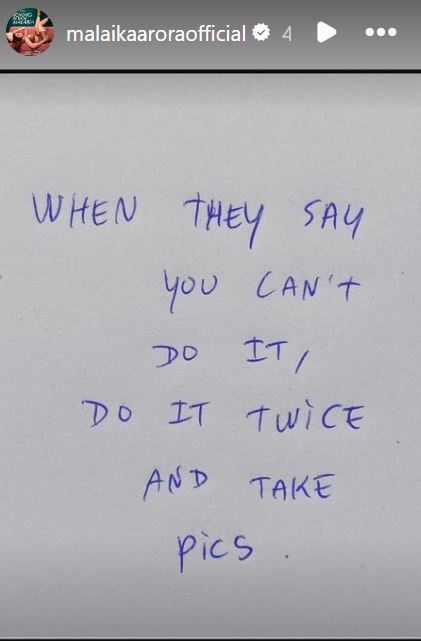 malaikaaroraofficial 4
WHEN THEY SAY
YOU CAN'T
DO IT,
DO IT TWICE
AND TAKE
PICS.